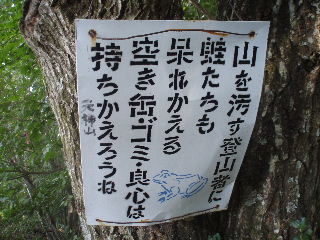 山を汚す登山者に
蛙たちも
呆れかえる
空き缶ゴミ・良心は
持ちかえろうね